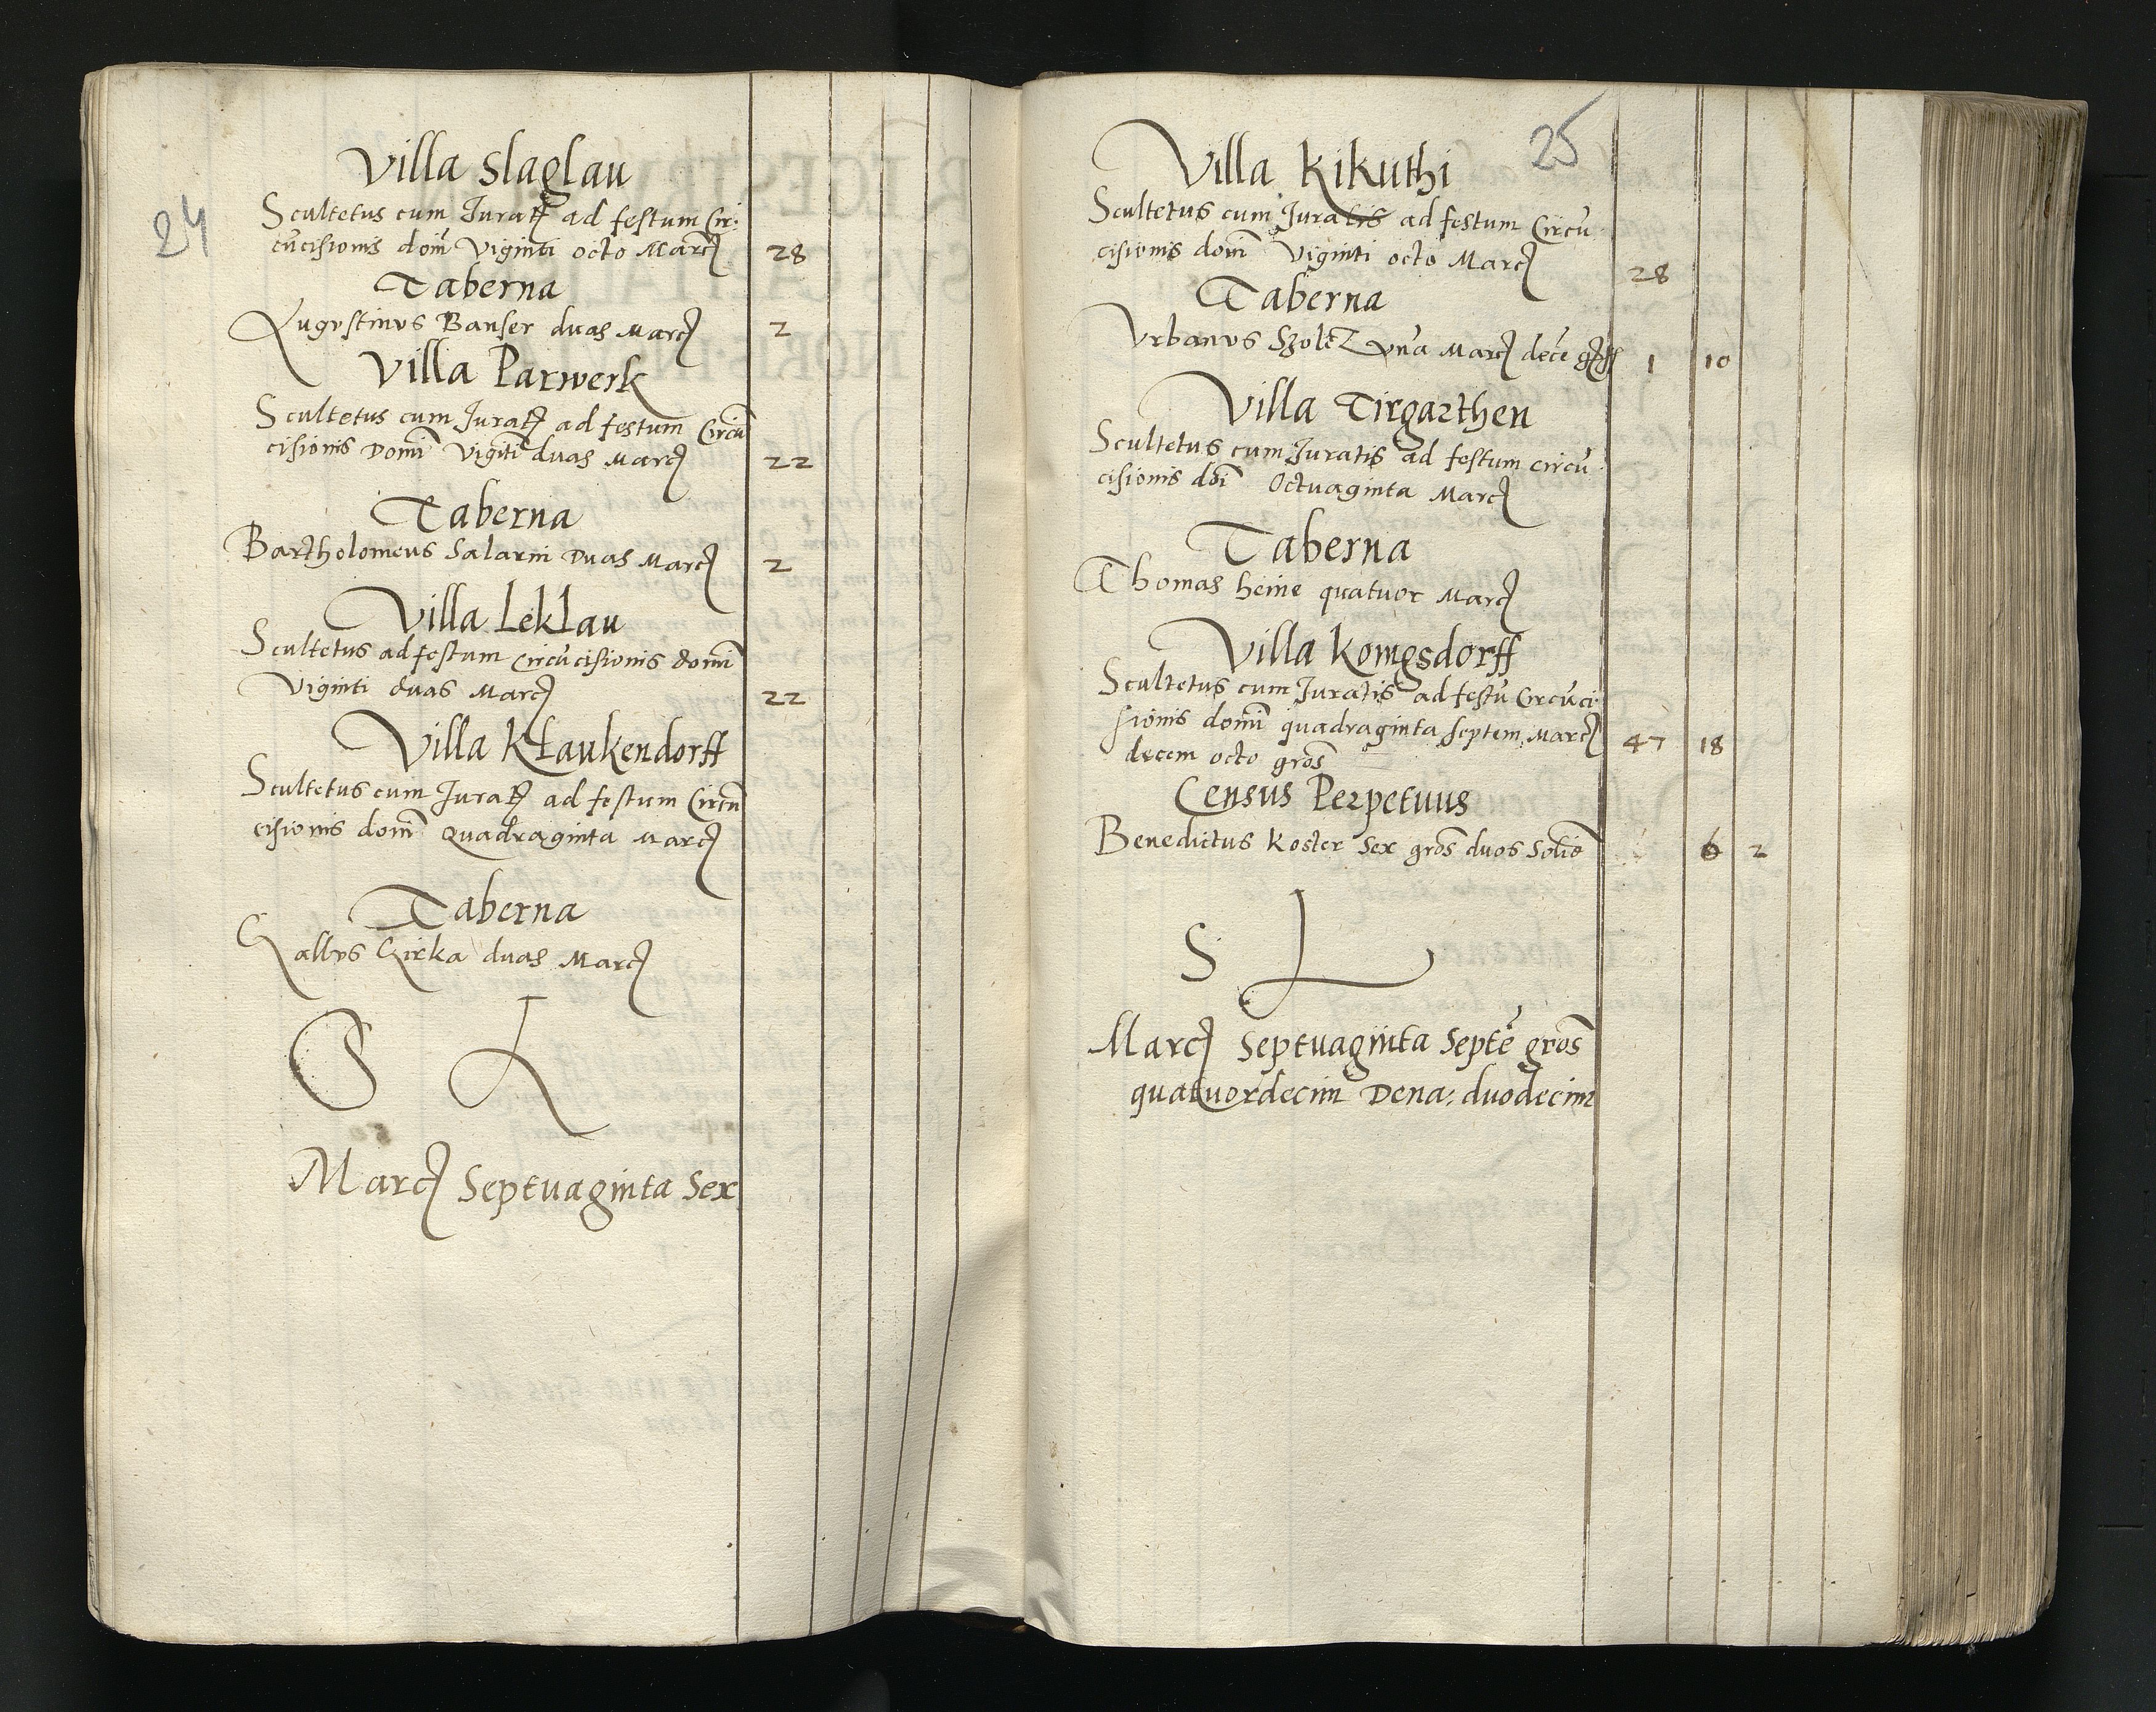 24
Villa Slaglau
Scultetus cum Juratꝭ ad festum Cir:
cūcisionis domī Viginti octo Marcꝭ 28
Taberna
Augvstinvs Banser dvas Marcꝭ 2
Villa Parwerk
Scultetus cum Juratꝭ ad festum Circū
cisionis Domī Vigītī dvas Marcꝭ 22
Taberna
Bartholomevs Salarin Dvas Marcꝭ 2
Villa Leklau
Scultetus ad festum Circūcisionis domī
Viginti dvas Marcꝭ 22
Villa Klaukendorff
Scultetus cum Juratꝭ ad festum Circū
cisionis domī Quadraginta Marcꝭ
Taberna
Gallvs Girka dvas Marcꝭ
S L
Marcꝭ Septvaginta Sex
25
Villa Kikuthi
Scultetus cum Juratis ad festum Circū
cisionis domī Viginti octo Marcꝭ 28
Taberna
Vrbanvs Szoltz vnā Marcꝭ decē 1 10
Villa Tirgarthen
Scultetus cum Juratis ad festum circū
cisionis dōi Octvaginta Marcꝭ
Taberna
Thomas heine qvatvor Marcꝭ
Villa Komgsdorff
Scultetus cum Juratis ad festū Circūci:
sionis domī quadraginta septem Marcꝭ 47 18
decem octo gros̄
Census Perpetuus
Benedictus Koster Sex gros̄ duos Solid̄ 6 2
S L
Marcꝭ Septvaginta Septē gros̄
quatvordecim Dena: dvodecim